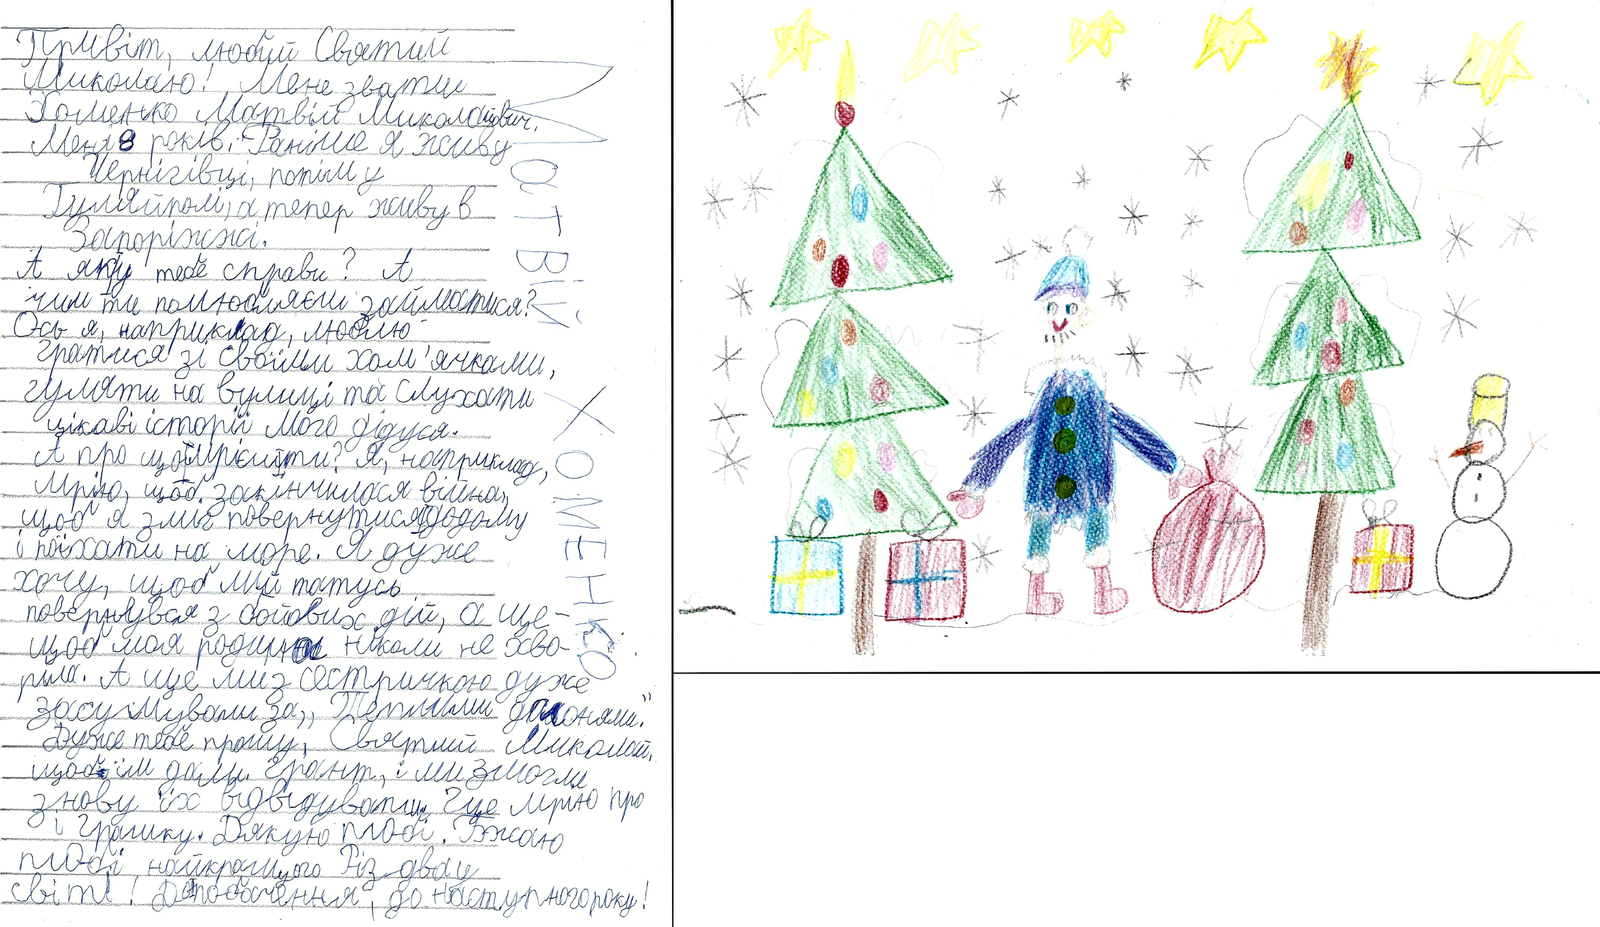 Привіт, любий Святий
Миколаю! Мене звати
Хоменко Матвій Миколайович.
Мені 8 років. Раніше я живу
Чернігівці, потім у
Гуляйполі, а тепер живу в
Запоріжжі.
А як у тебе справи? А
чим ти полюбляєш займатися?
Ось я, наприклад, люблю
гратися зі своїми хом'ячками,
гуляти на вулиці та слухати
цікаві історії мого дідуся.
А про що мрієш ти? Я, наприклад,
мрію, щоб закінчилася війна,
щоб я зміг повернутися додому
і поїхати на море. Я дуже
хочу, щоб мій татусь
повернувся з бойових дій, а ще-
щоб моя родина ніколи не хво-
ріла. А ще ми з сестричкою дуже
засумували за „Теплими долонями".
Дуже тебе прошу, Святий Миколай,
щоб їм дали грант, і ми змогли
знову їх відвідувати. Ще мрію про
іграшку. Дякую тобі. Бажаю
тобі найкращого Різдва у
світі! До побачення, до наступного року!
МАТВІЙ ХОМЕНКО